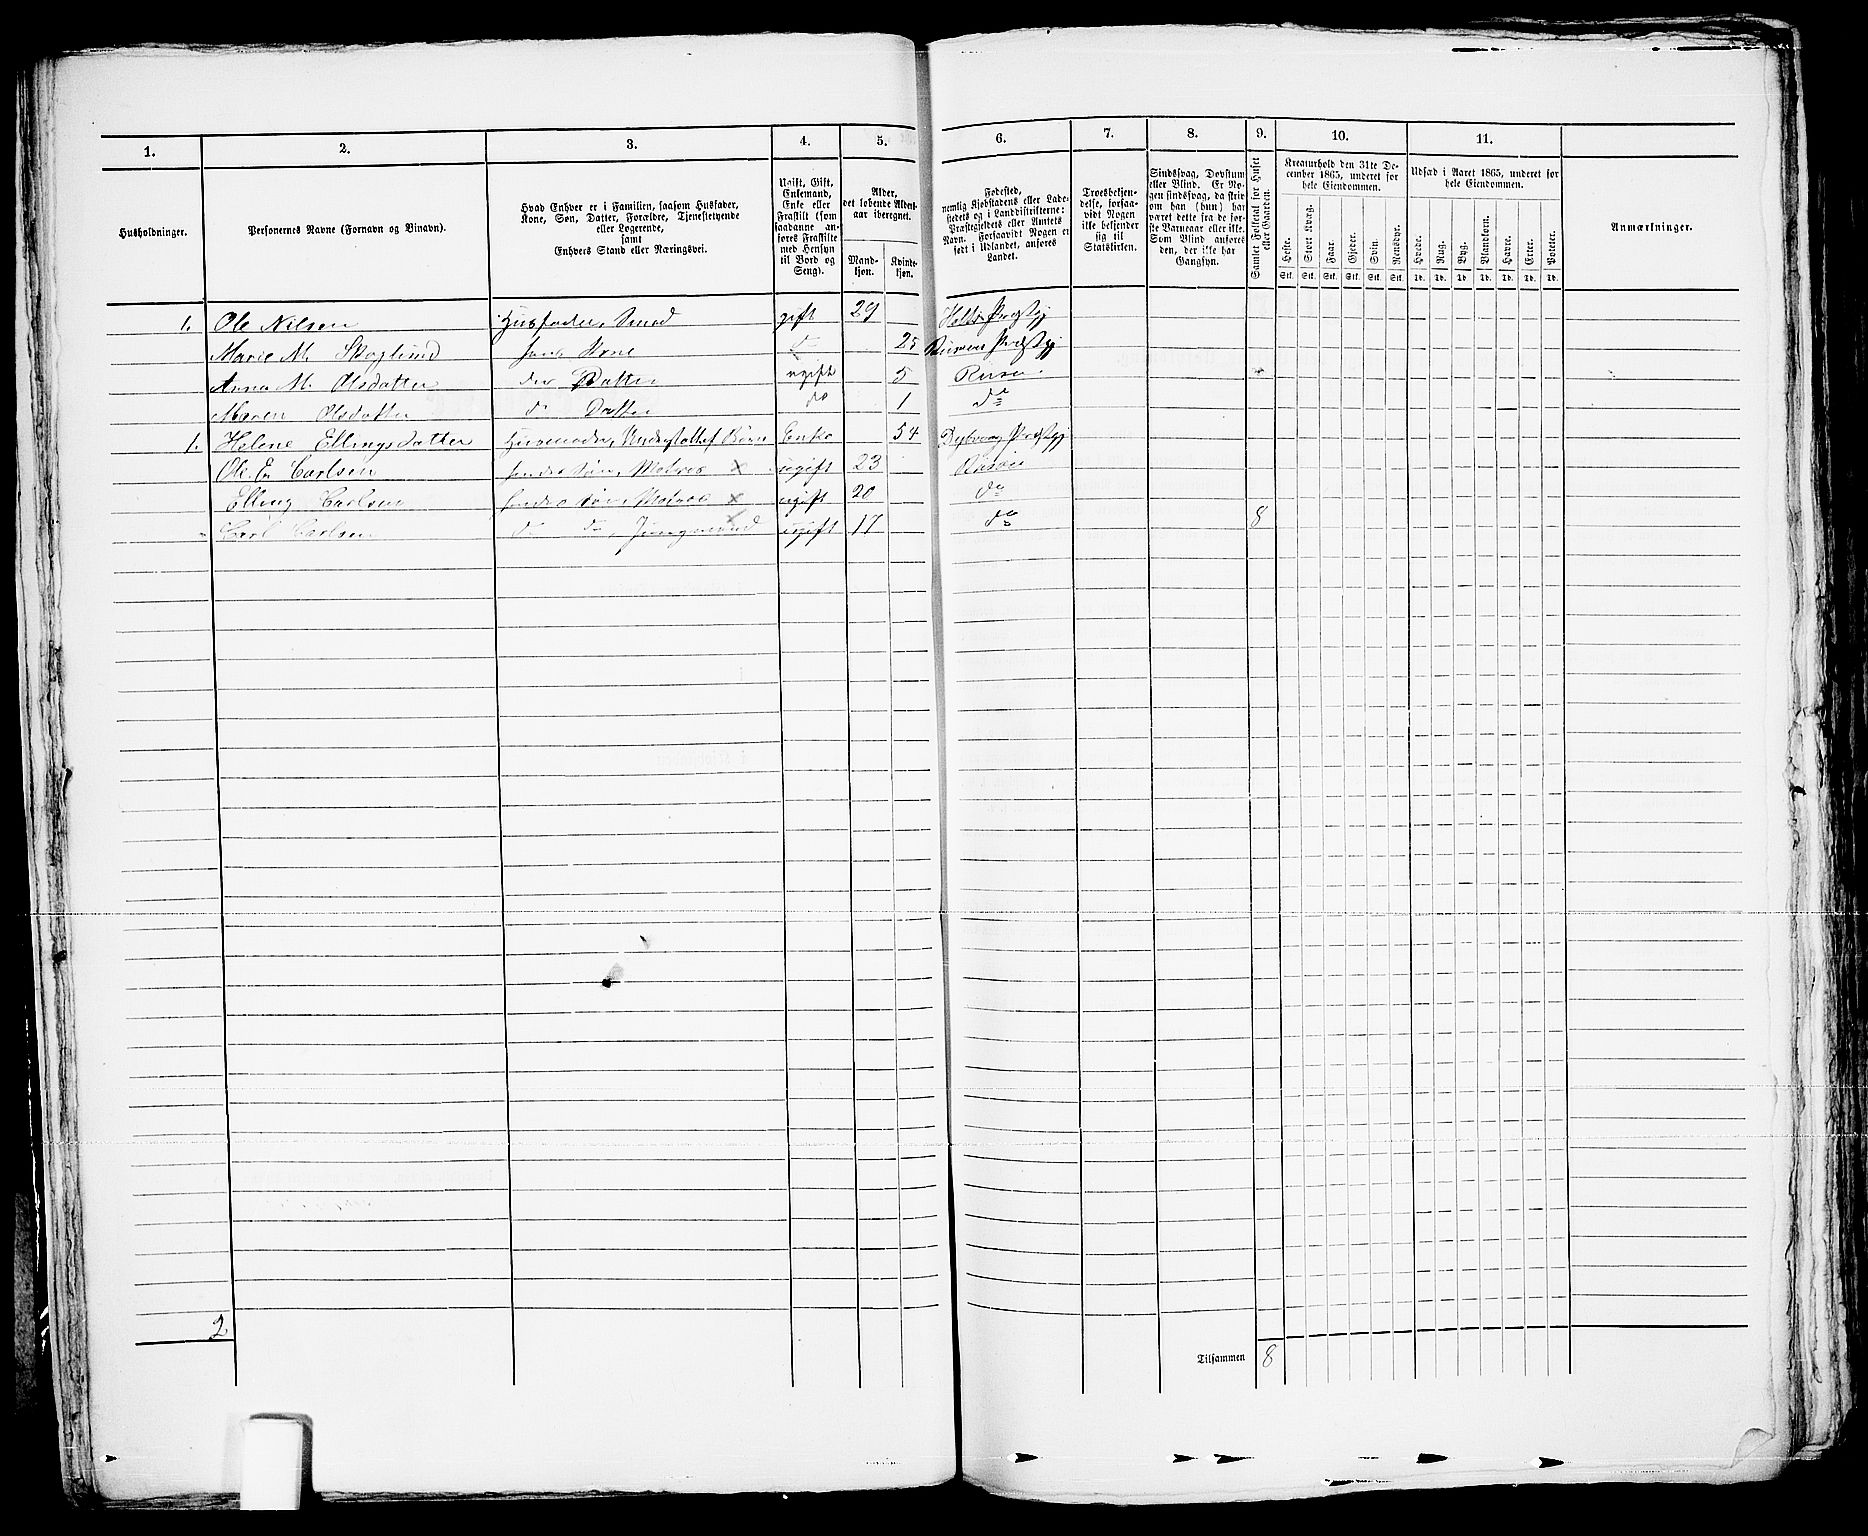 1. 2. 3. 4. 5. 6. 7. 8. 9. 10. 11.
Husholdninger.
Personernes Navne (Fornavn og Binavn).
Hvad Enhver er i Familien, saasom Husfader,
Kone, Søn, Datter, Forældre, Tjenestetyende
eller Logerende,
samt
Enhvers Stand eller Næringsvei.
Ugift, Gift,
Enkemand,
Enke eller
Fraskilt (som
saadanne an-
føres Fraskilte
med Hensyn
til Bord og
Seng).
Alder,
det løbende Alders-
aar iberegnet.
Mand-
kjøn.
Kvinde-
kjøn.
Fødested,
nemlig Kjøbstadens eller Lade-
stedets og i Landdistrikterne:
Præstegjeldets eller Amtets
Navn. Forsaavidt Nogen er
født i Udlandet, anføres
Landet.
Troesbekjen-
delse, forsaa-
vidt Nogen
ikke bekjender
sig til
Statskirken.
Sindssvag, Døvstum
eller Blind. Er No-
gen sindssvag, da skriv
om han (hun) har
været dette fra de før-
ste Barneaar eller ikke.
Som Blind anføres
den, der ikke har
Gangsyn.
Samlet Folketal for Huset
eller Gaarden.
Kreaturhold den 31te De-
cember 1865, underet for
hele Eiendommen.
Heste. Stort Kvæg. Faar. Gjeder. Svin. Rensdyr.
Stk. Stk. Stk. Stk. Stk. Stk.
Udsæd i Aaret 1865, underet for
hele Eiendommen.
Hvede. Rug. Byg. Blandkorn. Havre. Erter. Poteter.
Td. Td. Td. Td. Td. Td. Td.
Anmærkninger.
1. Ole Nilsen Husfader, Smed gift 29 Holts Præstgj
Marie M. Skoglund hans Kone d 25 Præstgj
Anna M. Olsdatter des Datter ugift 5
Maren Olsdatter d Datter do 1 do
1. Helene Ellingsdatter Husmoder, Understøttet Børn Enke 54 Dybvaag Præstgj
Ole En Carlsen hendes Søn, Matros x ugift 23
Elling Carlsen hendes Søn, Matros x ugift 20 do
" Carl Carlsen d do Jungmand x ugift 17 do 8
2
Tilsammen 8